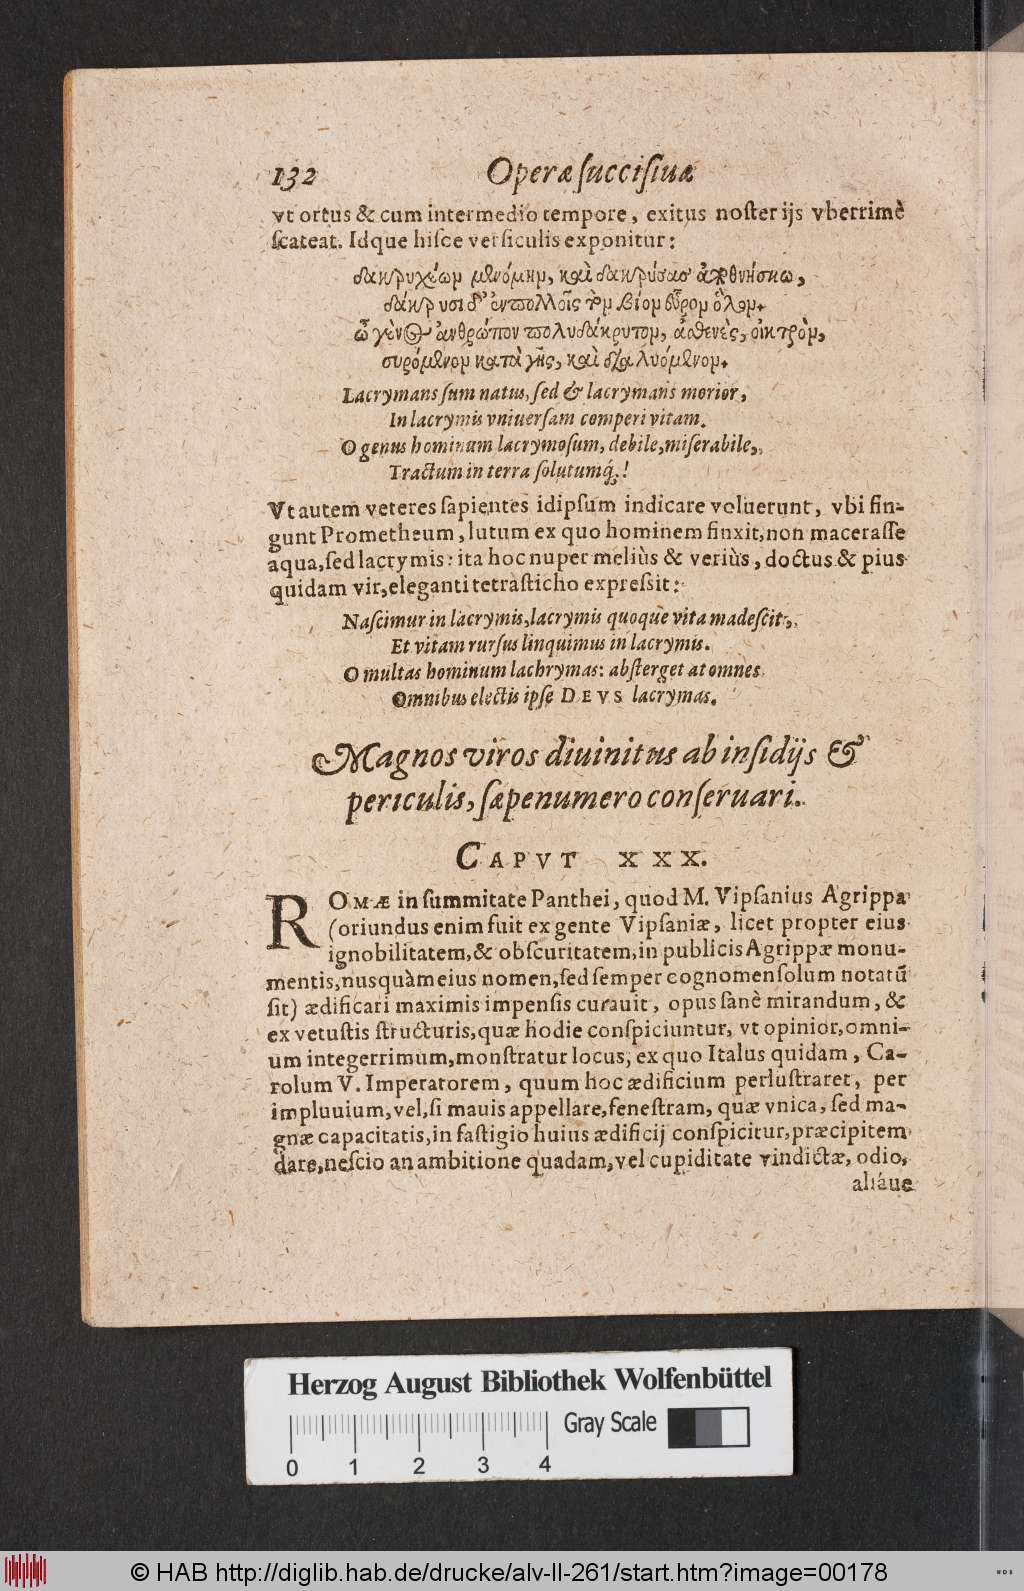 132 Operæ ſucciſiuæ
vt ortus & cum intermedio tempore, exitus noſter ijs vberrimè
ſcateat. Idque hiſce verſiculis exponitur:
δακρυχέων γενόμην, καὶ δακρύσας ἀποθνήσκω,
δάκρυσι δ' ἐν πολλοῖς τὸν βίον εὗρον ὅλον.
ὦ γένος ἀνθρώπον πολυδάκρυτον, ἀσθενὲς, οἰκτρὸν,
συρόμενον κατὰ γῆς, καὶ διαλυόμενον.
Lacrymans ſum natus, ſed & lacrymans morior,
In lacrymis vniuerſam comperi vitam.
O genus hominum lacrymoſum, debile, miſerabile,
Tractum in terra ſolutumq́;!
Vt autem veteres ſapientes idipſum indicare voluerunt, vbi fin-
gunt Prometheum, lutum ex quo hominem finxit, non maceraſſe
aqua, ſed lacrymis: ita hoc nuper meliùs & veriùs, doctus & pius
quidam vir, eleganti tetraſticho expreſsit:
Naſcimur in lacrymis, lacrymis quoque vita madeſcit,
Et vitam rurſus linquimus in lacrymis.
O multas hominum lachrymas: abſterget at omnes
Omnibus electis ipſe DEVS lacrymas.
Magnos viros diuinitus ab inſidijs &
periculis, ſæpenumero conſeruari.
CAPVT XXX.
ROMÆ in ſummitate Panthei, quod M. Vipſanius Agrippa
(oriundus enim fuit ex gente Vipſaniæ, licet propter eius
ignobilitatem, & obſcuritatem, in publicis Agrippæ monu-
mentis, nusquàm eius nomen, ſed ſemper cognomen ſolum notatũ
ſit) ædificari maximis impenſis curauit, opus ſanè mirandum, &
ex vetuſtis ſtructuris, quæ hodie conſpiciuntur, vt opinior, omni-
um integerrimum, monſtratur locus, ex quo Italus quidam, Ca-
rolum V. Imperatorem, quum hoc ædificium perluſtraret, per
impluuium, vel, ſi mauis appellare, feneſtram, quæ vnica, ſed ma-
gnæ capacitatis, in faſtigio huius ædificij conſpicitur, præcipitem
dare, neſcio an ambitione quadam, vel cupiditate vindictæ, odio,
aliáue
Herzog August Bibliothek Wolfenbüttel
Gray Scale
0 1 2 3 4
© HAB http://diglib.hab.de/drucke/alv-ll-261/start.htm?image=00178